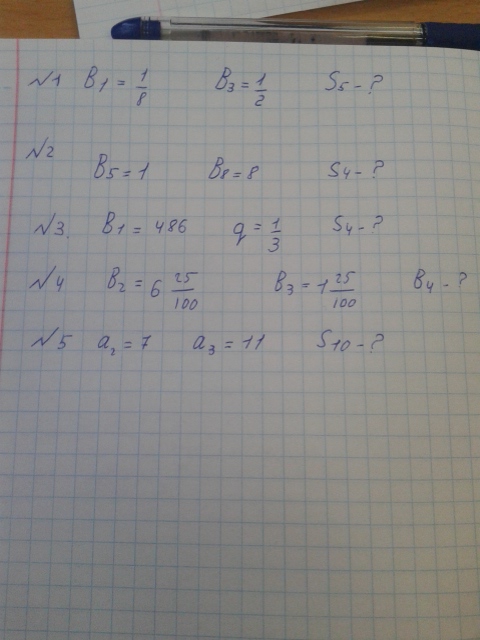 №1 B₁ = 1/8 B₃ = 1/2 S₅ - ?
№2
B₅ = 1 B₈ = 8 S₄ - ?
№3. B₁ = 486 q = 1/3 S₄ - ?
№4 B₂ = 6 25/100 B₃ = 1 25/100 B₄ - ?
№5 a₂ = 7 a₃ = 11 S₁₀ - ?